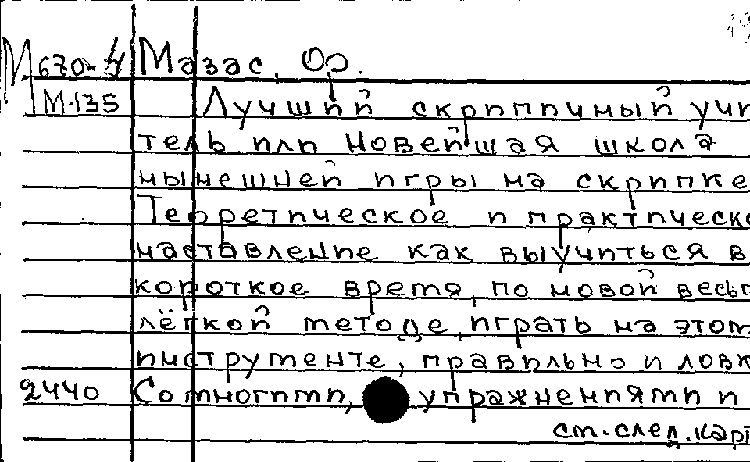 М670-4 Мазас, Фр.
М-135 Лучший скрипичный учи
тель или новейшая школа
нынешней игры на скрипке
Теоретическое и практическо
наставление как выучиться в
короткое время, по новой весьм
лёгкой методе, играть на этом
инструменте, правильно и ловк
2440 Со многими, упражнениями и
см. след. кар